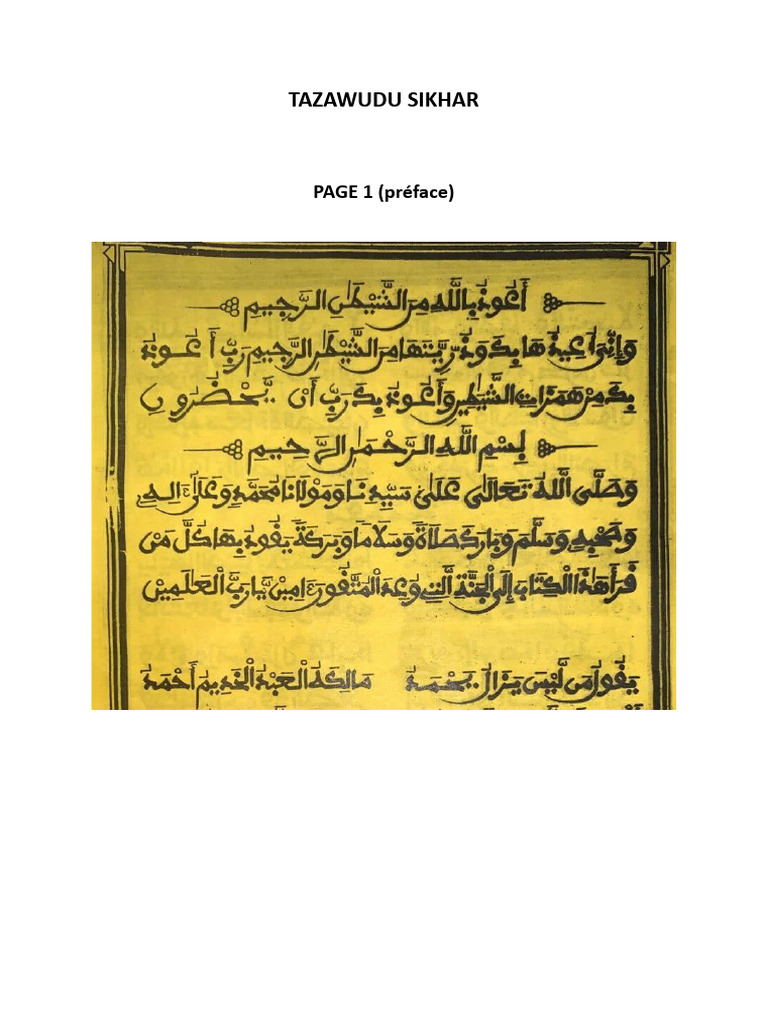 TAZAWUDU SIKHAR
PAGE 1 (préface)
أَعُوذُ بِاللَّهِ مِنَ الشَّيْطَانِ الرَّجِيمِ
وَإِنِّي أُعِيذُهَا بِكَ وَذُرِّيَّتَهَا مِنَ الشَّيْطَانِ الرَّجِيمِ رَبِّ أَعُوذُ
بِكَ مِنْ هَمَزَاتِ الشَّيَاطِينِ وَأَعُوذُ بِكَ رَبِّ أَنْ يَّحْضُرُونِ
بِسْمِ اللَّهِ الرَّحْمَٰنِ الرَّحِيمِ
وَصَلَّى اللَّهُ تَعَالَى عَلَىٰ سَيِّدِنَا وَمَوْلَانَا مُحَمَّدٍ وَعَلَىٰ ءَالِهِ
وَصَحْبِهِ وَسَلَّمَ وَبَارَكَ صَلَاةً وَسَلَامًا وَبَرَكَةً يَقُودُ بِهَا كُلَّ مَنْ
قَرَأَ هَٰذَا الْكِتَابَ إِلَى الْجَنَّةِ الَّتِي وُعِدَ الْمُتَّقُونَ ءَامِينَ يَا رَبَّ الْعَالَمِينَ
يَقُولُ مَن لَّيْسَ يَزَالُ يَحْمَدُ مَالِكَهُ الْعَبْدُ الْخَدِيمُ أَحْمَدُ